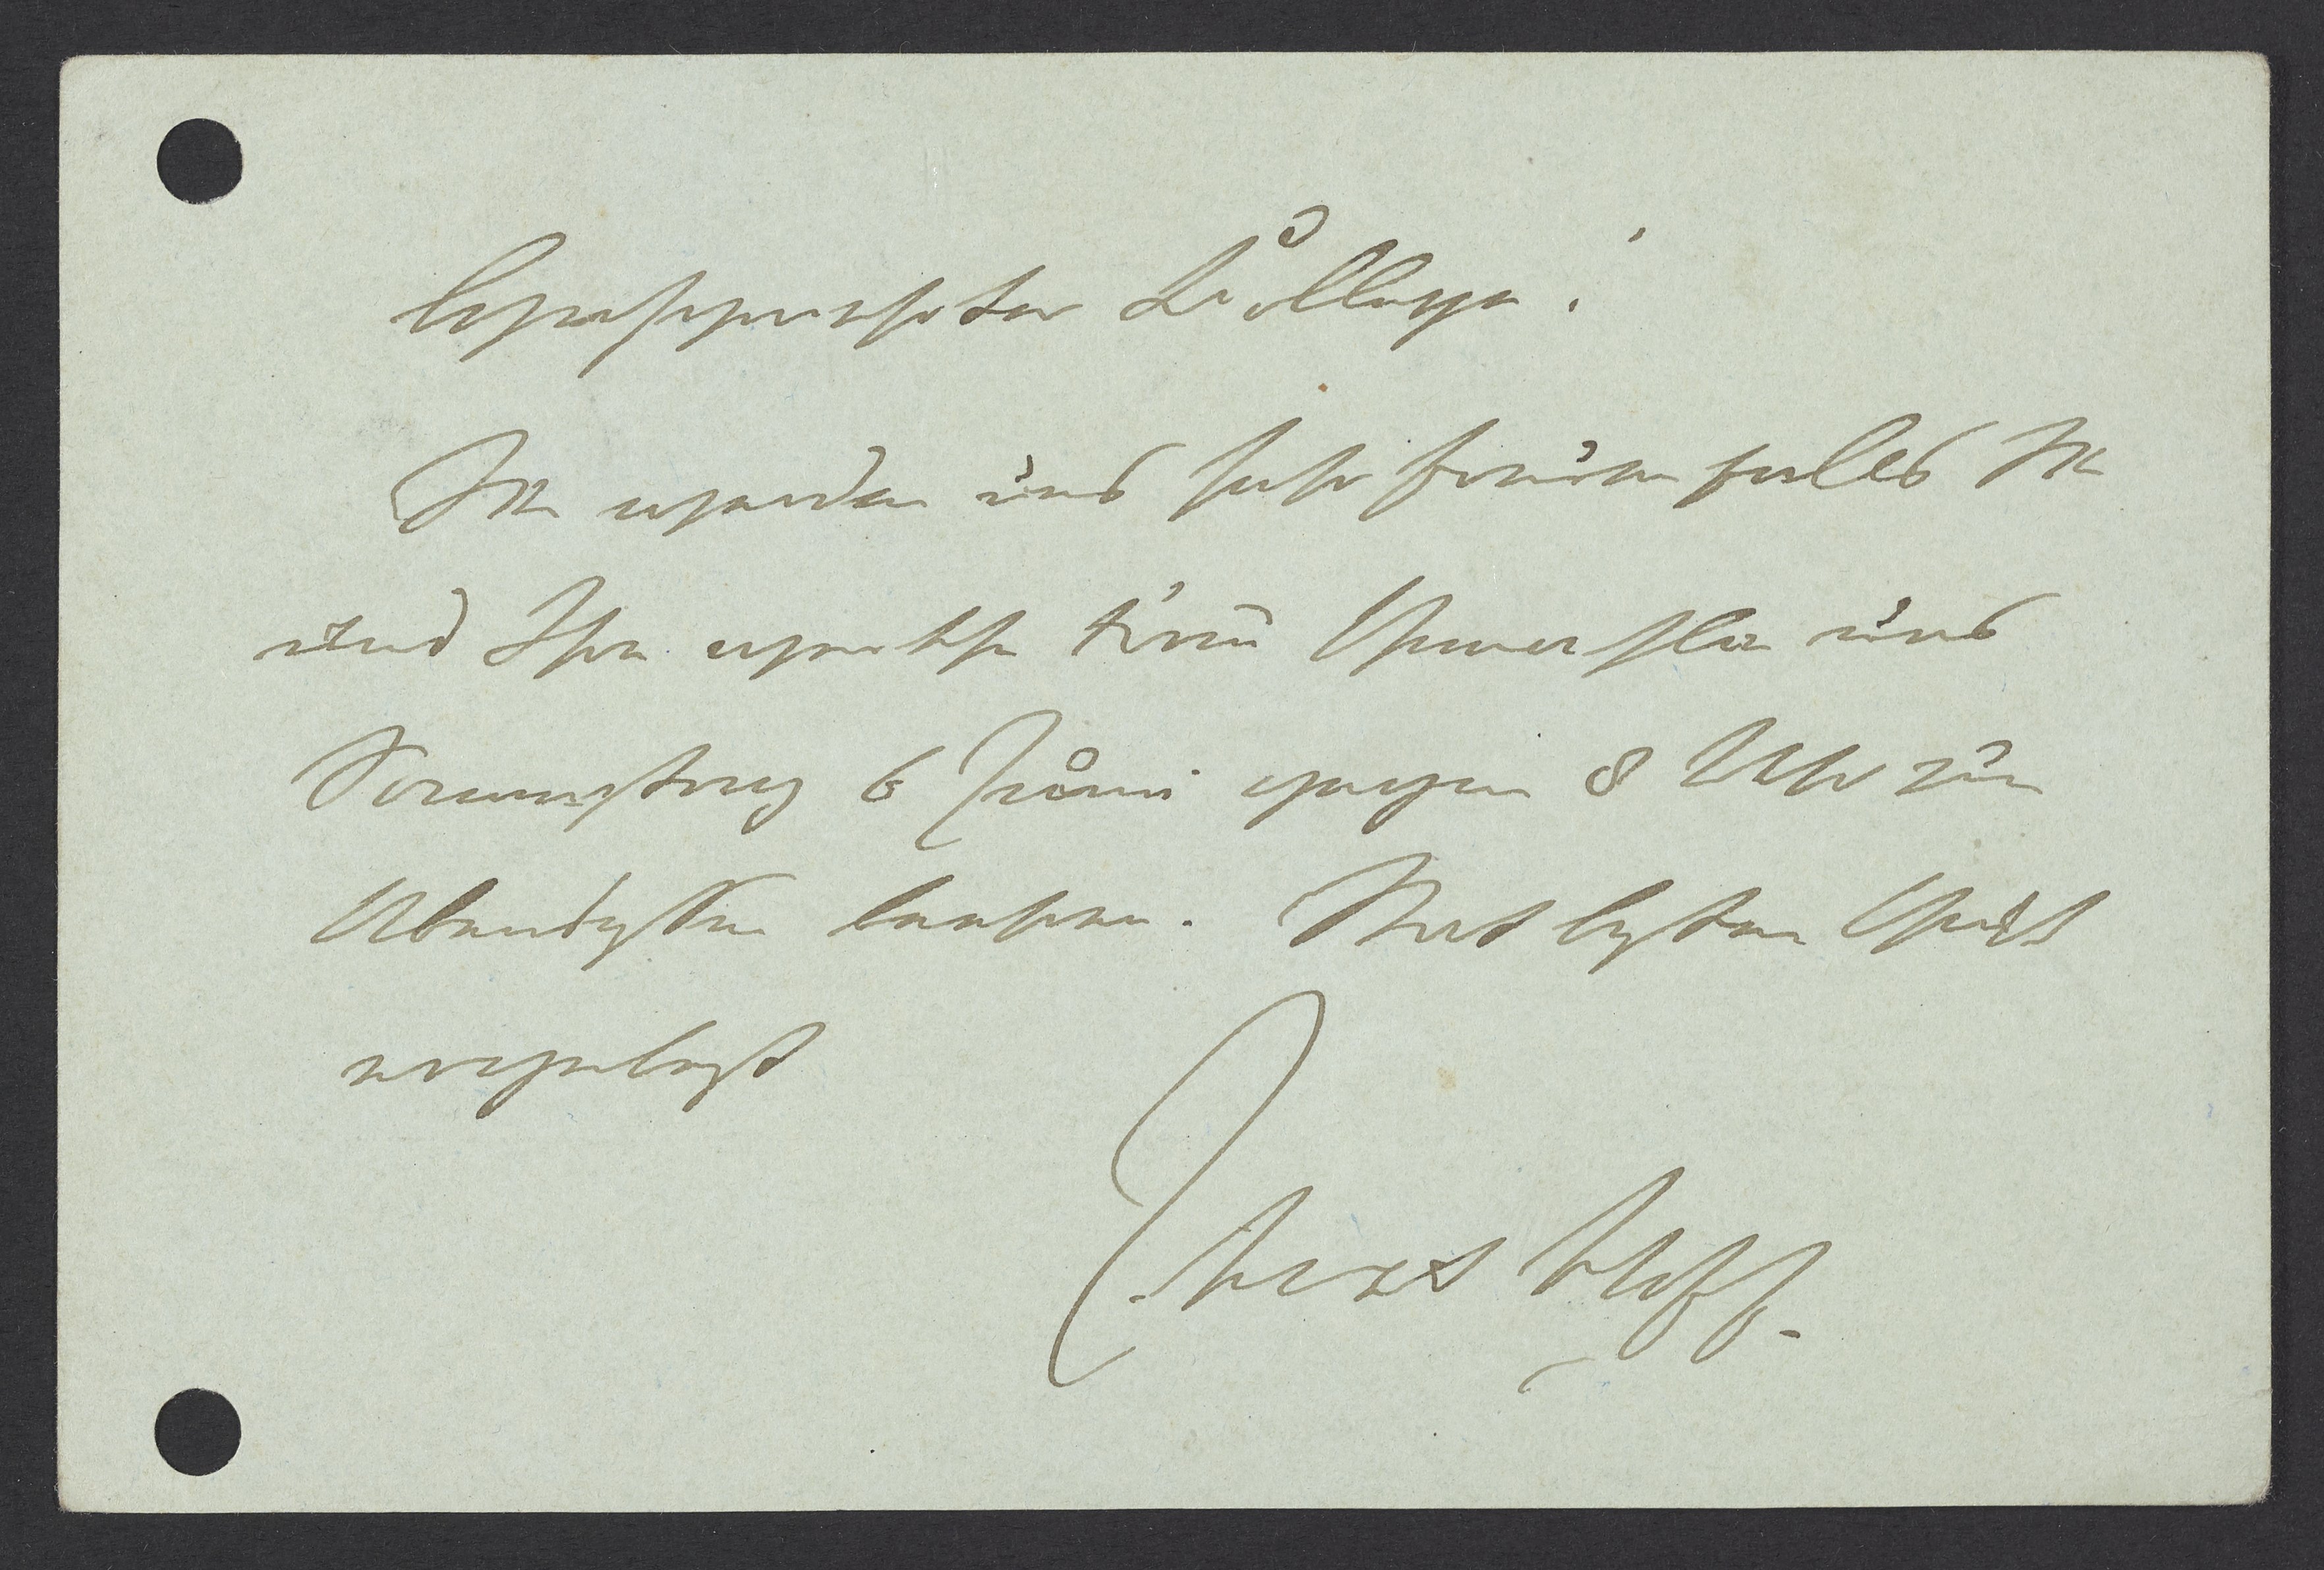 Hochgeehrter Kollege!
Sie werden uns sehr freuen falls Sie
und Ihre werthe Frau Gemahlin uns
Sonnstag 6 Juni gegen 8 Uhr zum
Abendessen beehren. Mit bestem Gruß
ergebenst